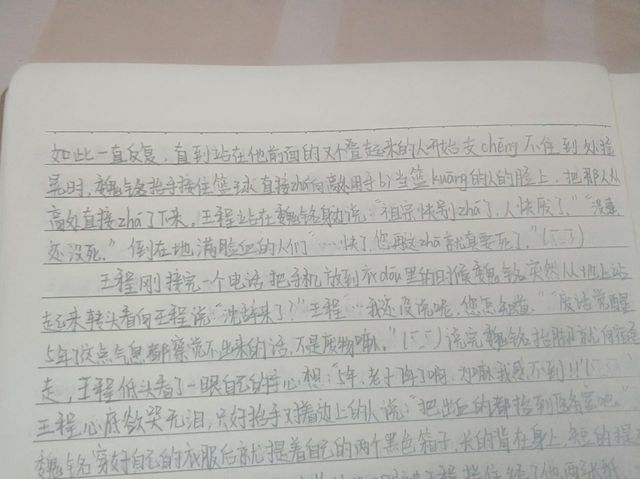 如此一直反复，直到站在他前面的又个叠起来的人开始支chēng不住到处摇
晃时，魏铭抬手接住篮球直接zhá向高处用手bì当篮kuāng的人的脸上，把那人从
高处直接zhá了下来。王程站在魏铭身边说，“祖宗快别zhá了，人快废了。”“没事，
还没死。”倒在地满脸血的人们“…快了您再这zhá就真要死了。”
王程刚接完一个电话把手机放到衣dōu里的时候魏铭突然从地上站
起来转头看向王程说“沈醉来了？”王程“…我还没说呢，您怎么知道。”“废话觉醒
5年了这点气息都察觉不出来的话，不是废物嘛。”说完魏铭抬脚就向宿舍
走，王程低头看了一眼自己的 心想：“5年，老子阵了啊，为嘛我感不到!!”
王程心底欲哭无泪，只好抬手对着边上的人说：“把出血的都抬到医务室吧。”
魏铭穿好自己的衣服后就提着自己的两个黑色箱子，长的背在身上短的提